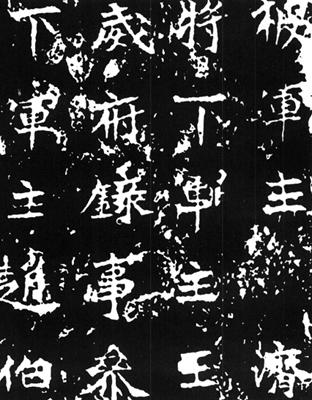 軍主濟
將下軍主王
威府錄事參
下軍主趙伯